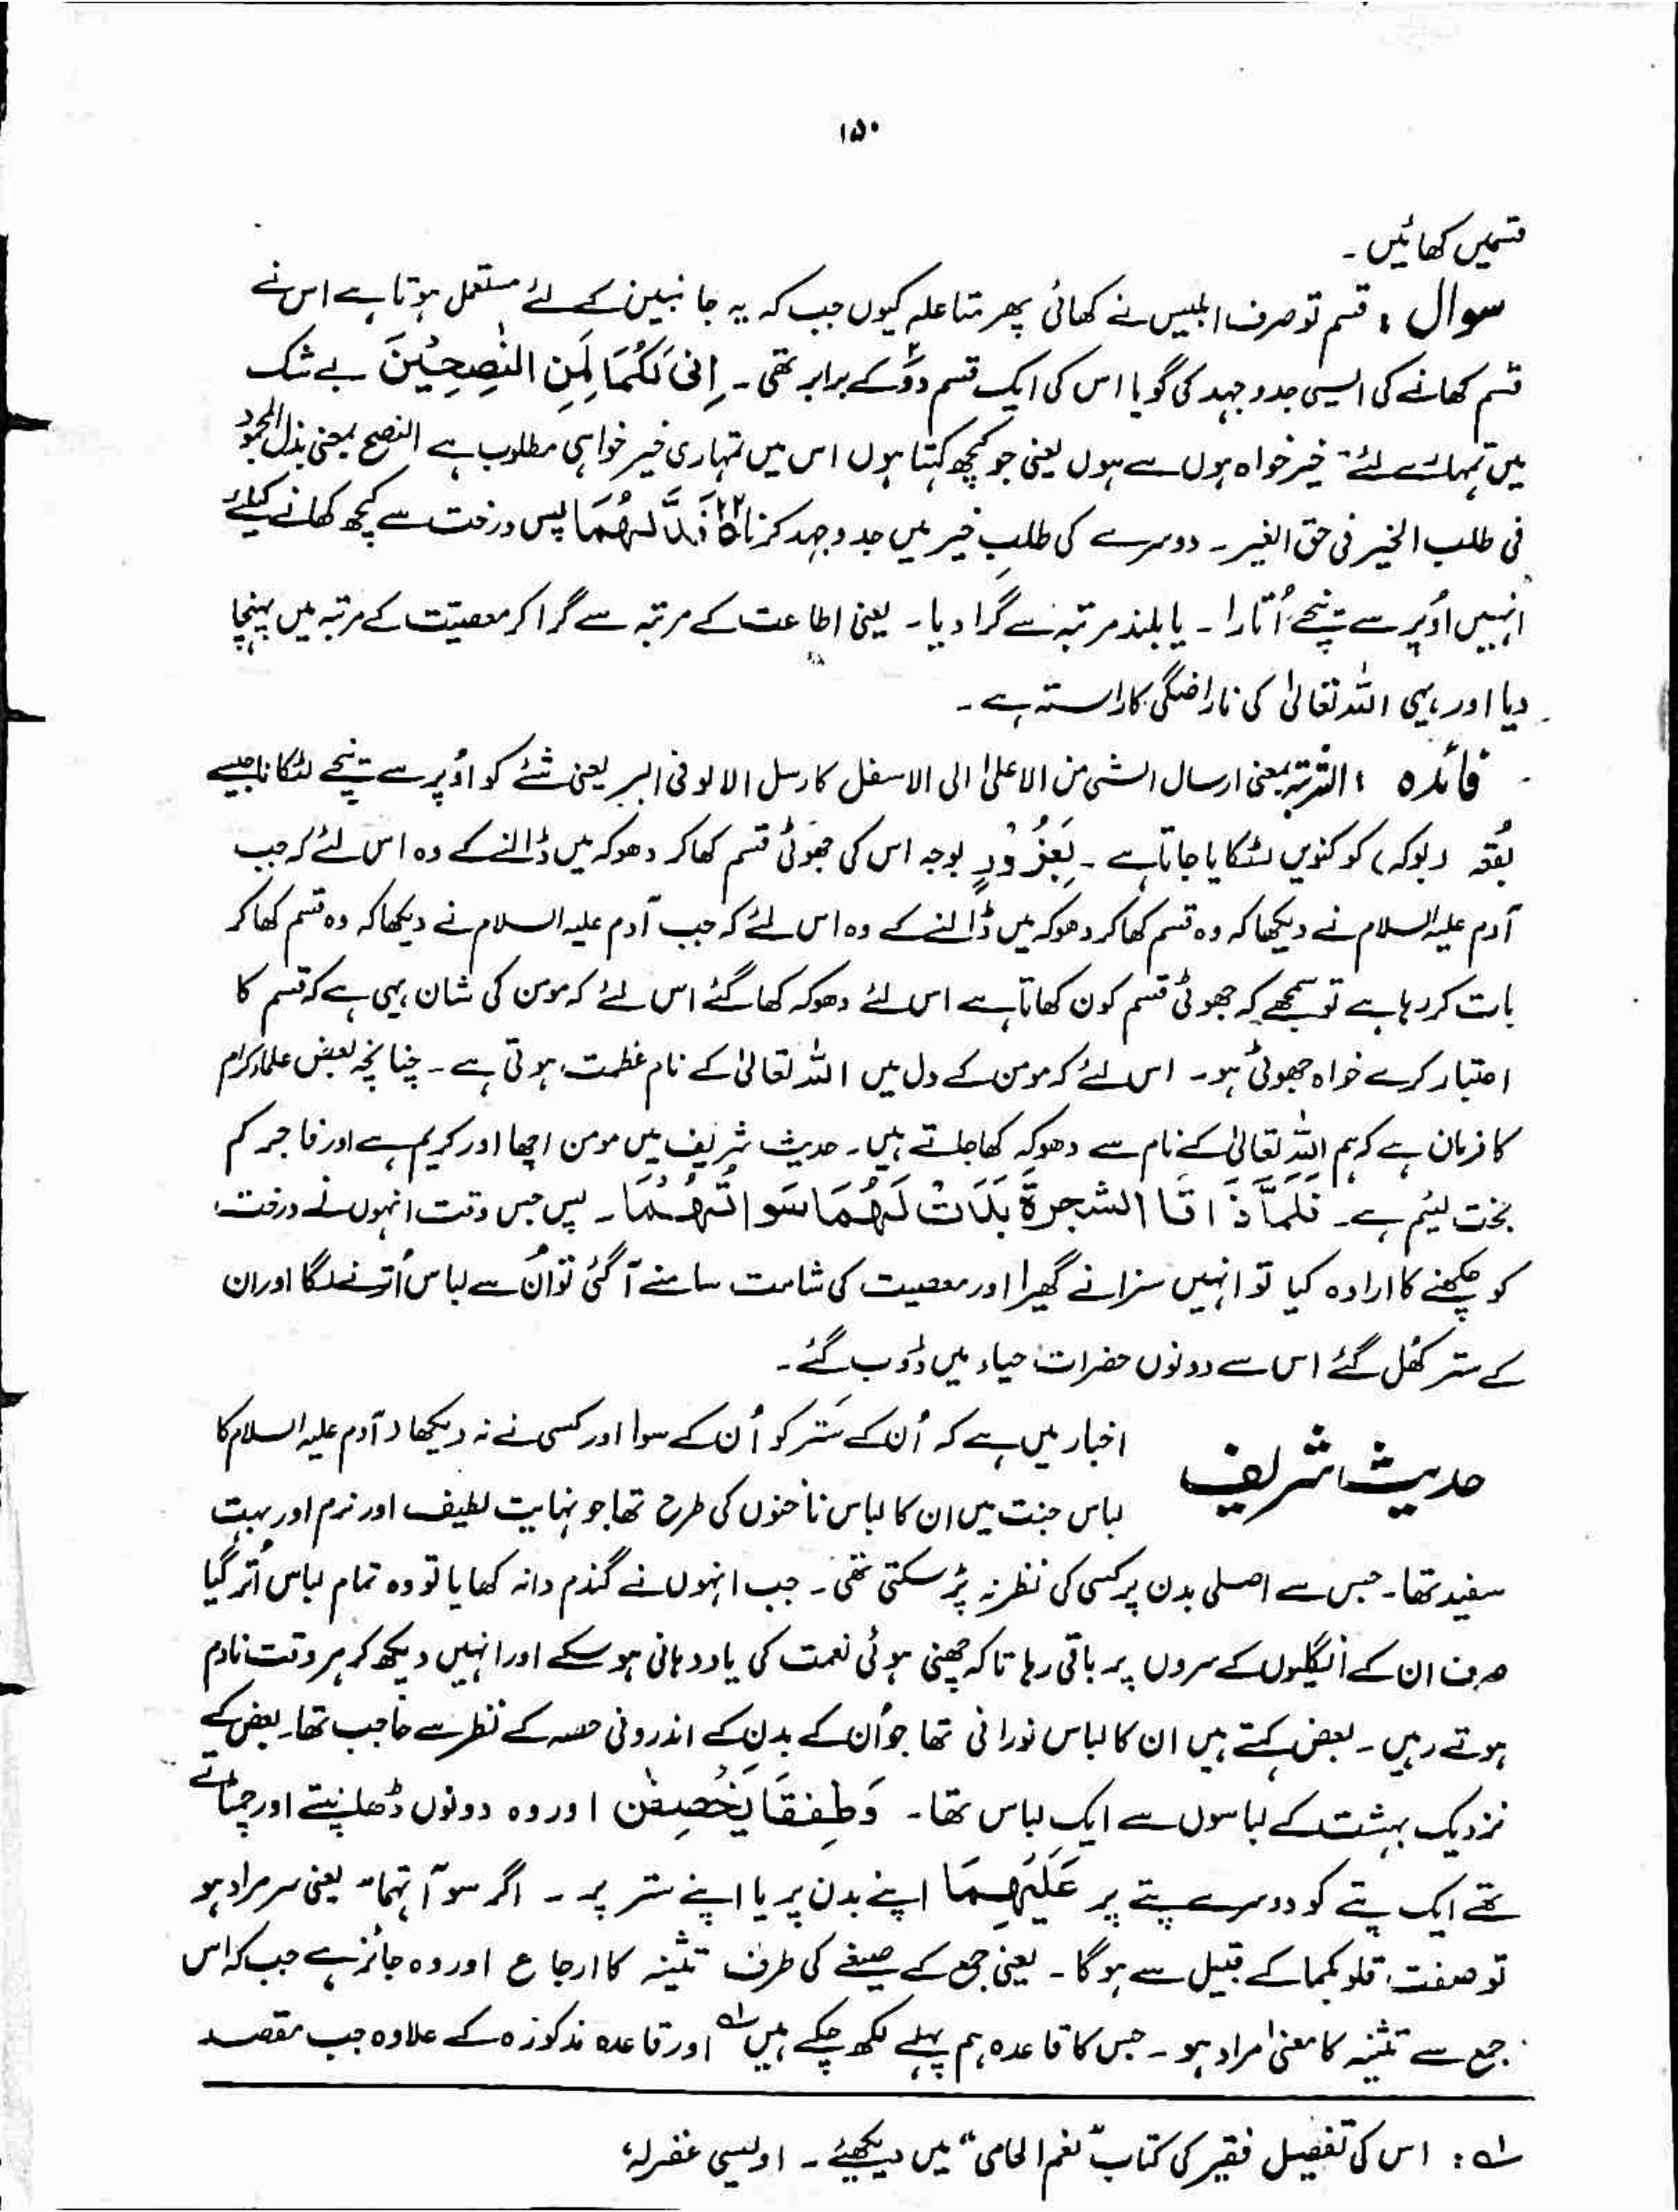 ۱۵۰
قسمیں کھائیں۔
سوال : قسم تو صرف ابلیس نے کھائی پھر متاعلہ کیوں جب کہ یہ جانبین کے لئے مستعمل ہوتا ہے اس نے
قسم کھانے کی ایسی جدوجہد کی گویا اس کی ایک قسم دو۲ کے برابر تھی۔ اِنِّی لَکُمَا لَمِنَ النّٰصِحِیْنَ بے شک
میں تمہارے لئے خیر خواہ ہوں سے ہوں یعنی جو کچھ کہتا ہوں اس میں تمہاری خیر خواہی مطلوب ہے النصح بمعنی بذل المجہود
فی طلب الخیر فی حق الغیر۔ دوسرے کی طلبِ خیر میں جدوجہد کرنا ۲۲ فَدَلّٰىهُمَا پس درخت سے کچھ کھانے کیلئے
انہیں اوُپر سے نیچے اُتارا۔ یا بلند مرتبہ سے گرا دیا۔ یعنی اطاعت کے مرتبہ سے گرا کر معصیّت کے مرتبہ میں پہنچا
دیا اور یہی اللہ تعالیٰ کی ناراضگی کا راستہ ہے۔
فائدہ : بمعنی ارسال الشی من الاعلیٰ الی الاسفل کارسل الالو فی البر یعنی شئے کو اوُپر سے نیچے لٹکانا جیسے
بُقّہ (بوکہ) کو کنویں لٹکایا جاتا ہے۔ بِغُرُوْرٍ بوجہ اس کی جھوٹی قسم کھا کر دھوکہ میں ڈالنے کے وہ اس لئے کہ جب
آدم علیہ السلام نے دیکھا کہ وہ قسم کھا کر دھوکہ میں ڈالنے کے وہ اس لئے کہ جب آدم علیہ السلام نے دیکھا کہ وہ قسم کھا کر
بات کر رہا ہے تو سمجھے کہ جھوٹی قسم کون کھاتا ہے اس لئے دھوکہ کھا گئے اس لئے کہ مومن کی شان یہی ہے کہ قسم کا
اعتبار کرے خواہ جھوٹی ہو۔ اس لئے کہ مومن کے دل میں اللہ تعالیٰ کے نام عظمت ہوتی ہے۔ چنانچہ بعض علماء کرام
کا فرمان ہے کہ ہم اللہ تعالیٰ کے نام سے دھوکہ کھا جاتے ہیں۔ حدیث شریف میں مومن اچھا اور کریم ہے اور فاجر کم
بخت لئیم ہے۔ فَلَمَّا ذَاقَا الشجرةَ بَدَتْ لَهُمَا سَوْاٰتُهُمَا۔ پس جس وقت انہوں نے درخت
کو چکھنے کا ارادہ کیا تو انہیں سزا نے گھیرا اور معصیت کی شامت سامنے آ گئی تو اُن سے لباس اُترنے لگا اور ان
کے ستر کھُل گئے اس سے دونوں حضرات حیاء میں ڈوب گئے۔
حدیث شریف
اخبار میں ہے کہ اُن کے سَتر کو اُن کے سوا اور کسی نے نہ دیکھا (آدم علیہ السلام کا
لباس جنت میں ان کا لباس ناخنوں کی طرح تھا جو نہایت لطیف اور نرم اور بہت
سفید تھا۔ جس سے اصلی بدن پر کسی کی نظر نہ پڑ سکتی تھی۔ جب انہوں نے گندم دانہ کھایا تو وہ تمام لباس اُتر گیا
صرف ان کے انگلیوں کے سروں پر باقی رہا تاکہ چھنی ہوئی نعمت کی یاد دہانی ہو سکے اور انہیں دیکھ کر ہر وقت نادم
ہوتے رہیں۔ بعض کہتے ہیں ان کا لباس نورانی تھا جو اُن کے بدن کے اندرونی حصہ کے نظر سے حاجب تھا۔ بعض کے
نزدیک بہشت کے لباسوں سے ایک لباس تھا۔ وَطَفِقَا یَخْصِفٰنِ اور وہ دونوں ڈھانپتے اور چمٹاتے
تھے ایک پتے کو دوسرے پتے پر عَلَیْهِمَا اپنے بدن پر یا اپنے ستر پر۔ اگر سوآتہما یعنی سر مراد ہو
تو صفت قلوبکما کے قبیل سے ہو گا۔ یعنی جمع کے صیغے کی طرف تثنیہ کا ارجاع اور وہ جائز ہے جب کہ اس
جمع سے تثنیہ کا معنیٰ مراد ہو۔ جس کا قاعدہ ہم پہلے لکھ چکے ہیں ؎۱ اور قاعدہ مذکورہ کے علاوہ جب مقصد
؎۱ : اس کی تفصیل فقیر کی کتاب "نعم الحامی" میں دیکھئے۔ اویسی غفرلہ،